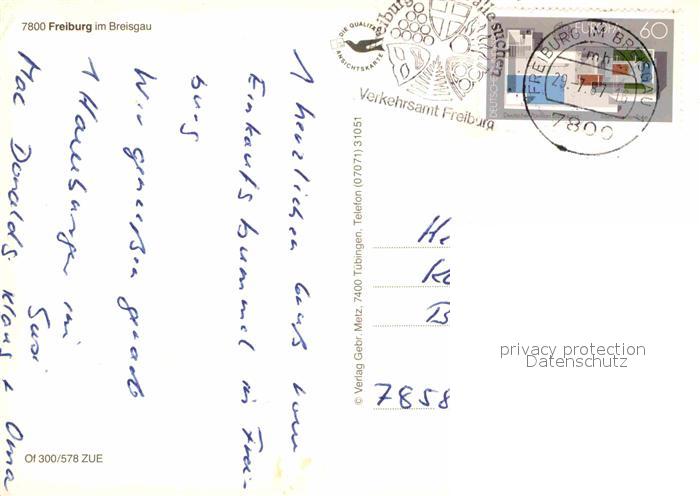 7800 Freiburg im Breisgau
1 herzlichen Gruß vom
Einkaufsbummel in Frei-
burg
Wir genießen gerade
1 Hamburger im
Mac Donalds. Klaus + Oma
Susi
Of 300/578 ZUE
DIE QUALITÄTS
ANSICHTSKARTE
© Verlag Gebr. Metz, 7400 Tübingen, Telefon (07071) 31051
Verkehrsamt Freiburg
EUROPA
60
FREIBURG IM BREISGAU
mh
29.-7.87
7800
He
Ke
B
7858
privacy protection
Datenschutz